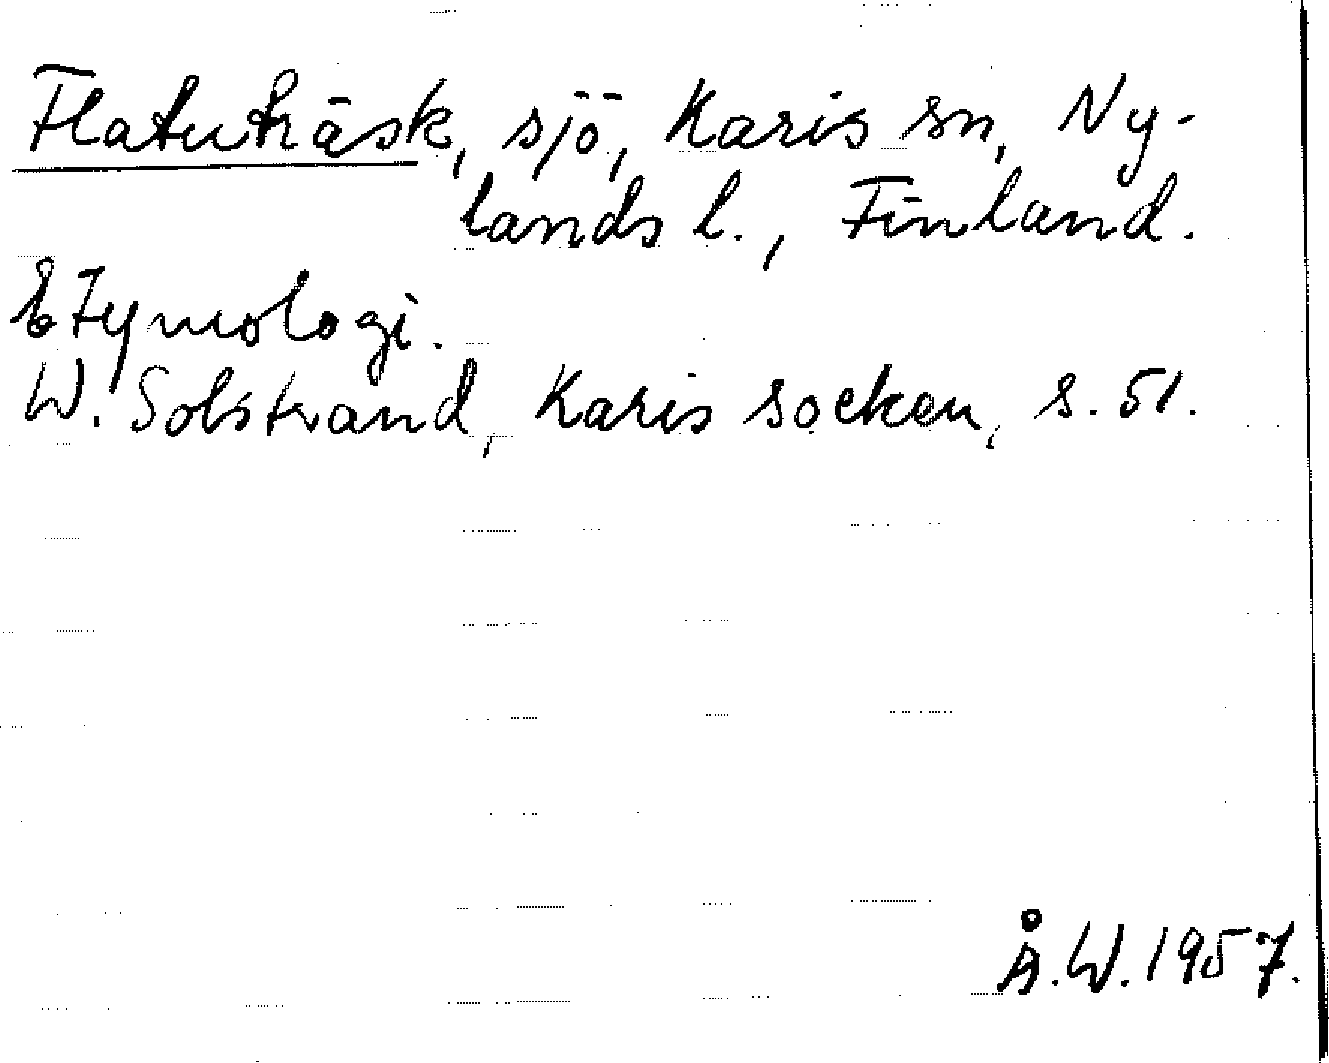 Flatuträsk, sjö, Karis sn, Ny-
lands l., Finland.
Etymologi.
W. Solstrand, Karis socken, s. 51.
Å.W. 1957.